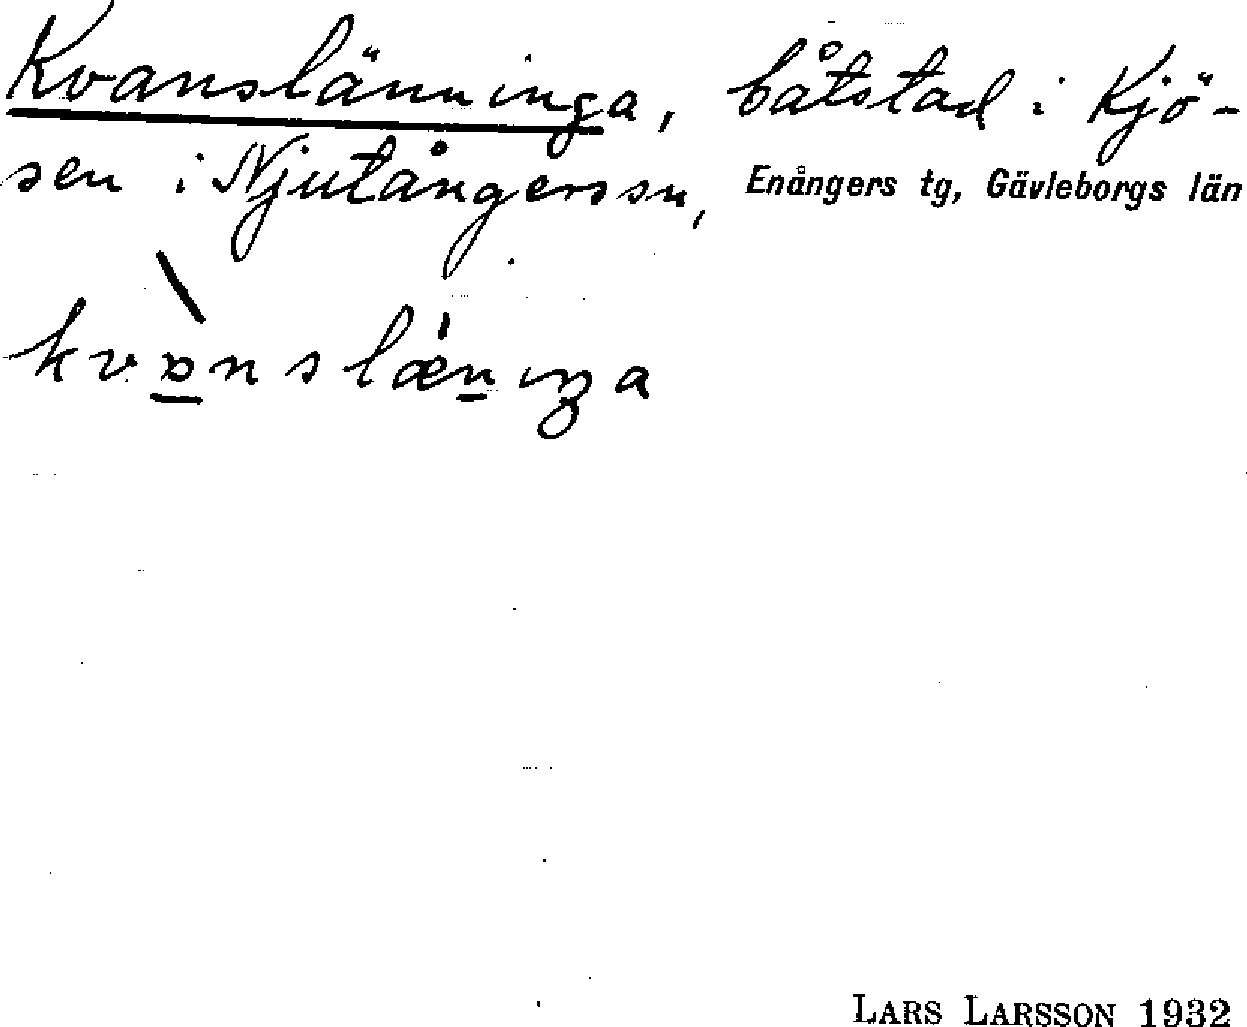 Kvanslänninga, båtstad i Kjö-
sen i Njutångers sn, Enångers tg, Gävleborgs län
kvanslæninga
LARS LARSSON 1932